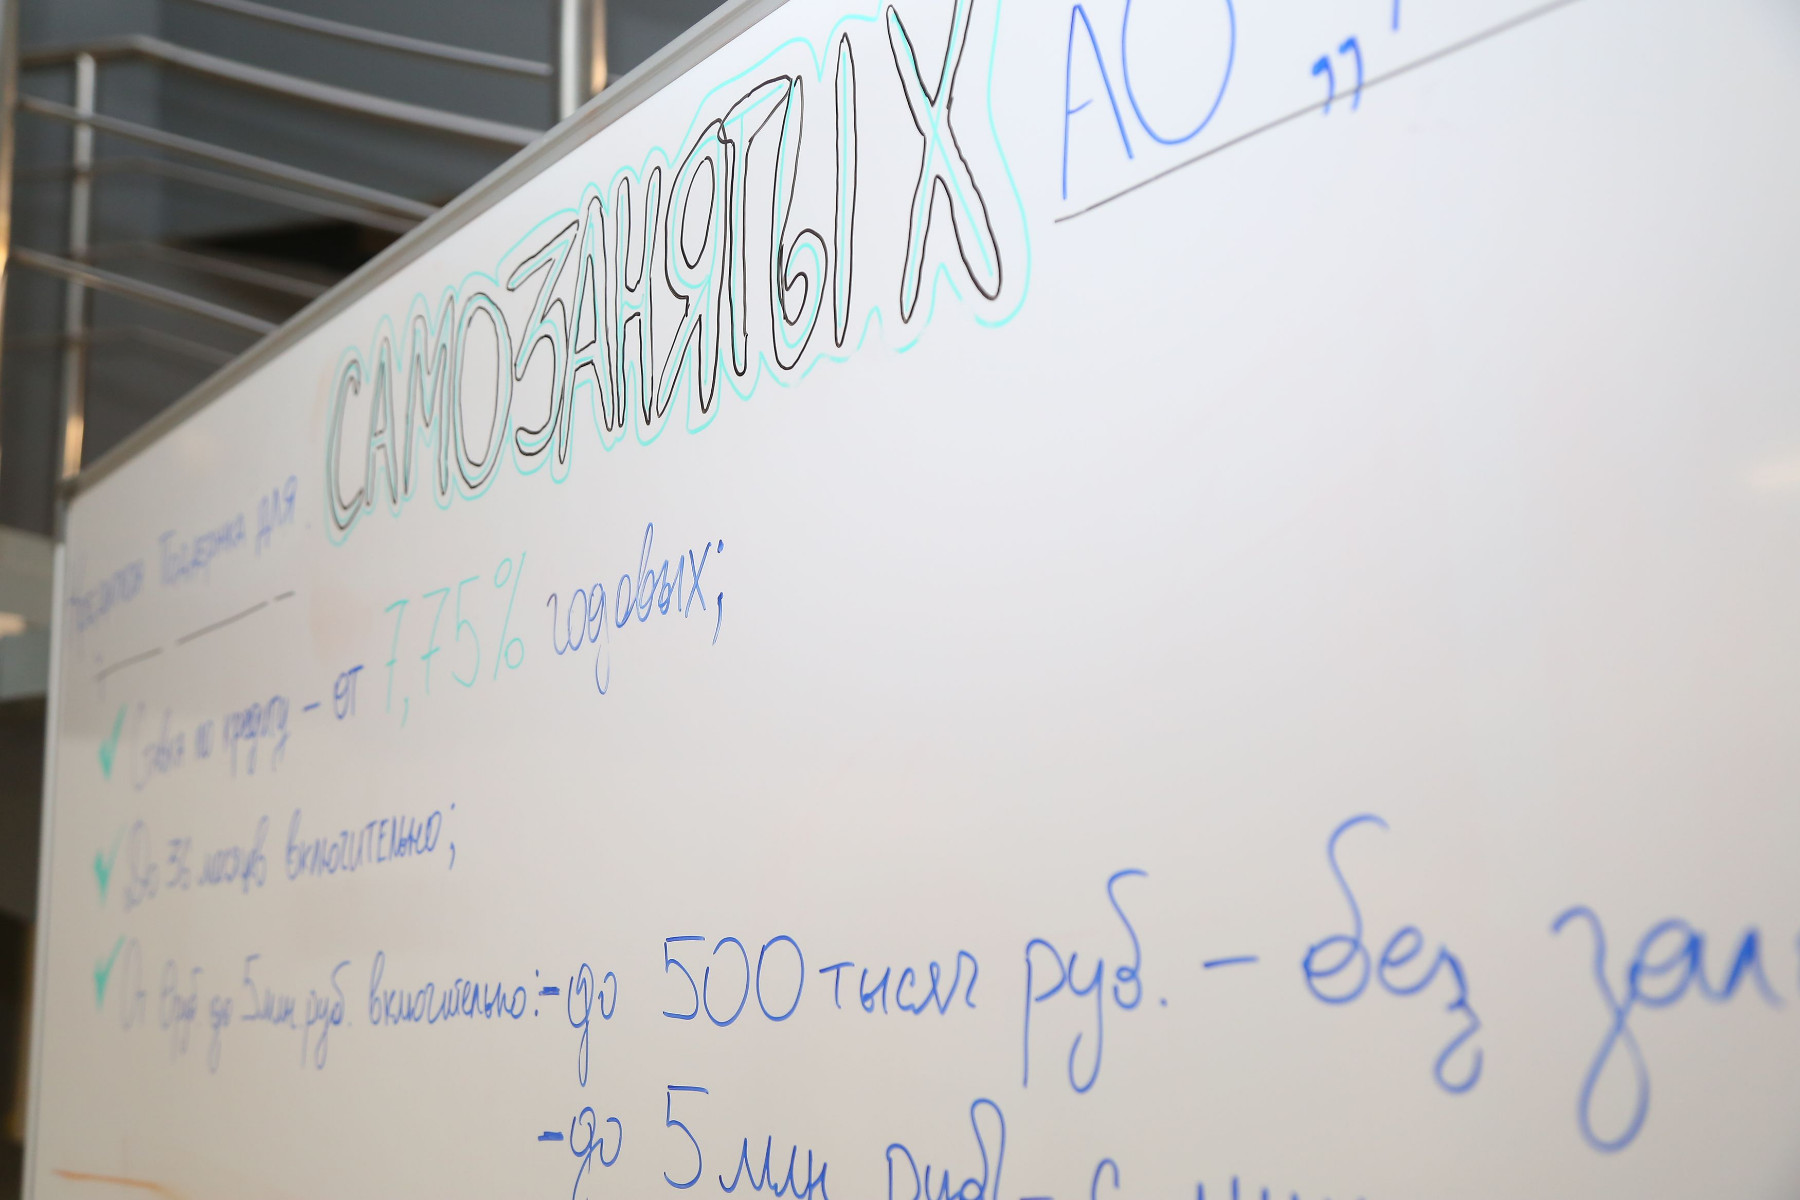 Поддержка для САМОЗАНЯТЫХ АО „
Ставка по кредиту – от 7,75% годовых;
До 36 месяцев включительно;
От руб. до 5 млн руб. включительно: - до 500 тысяч руб. – без
- до 5 млн руб – с